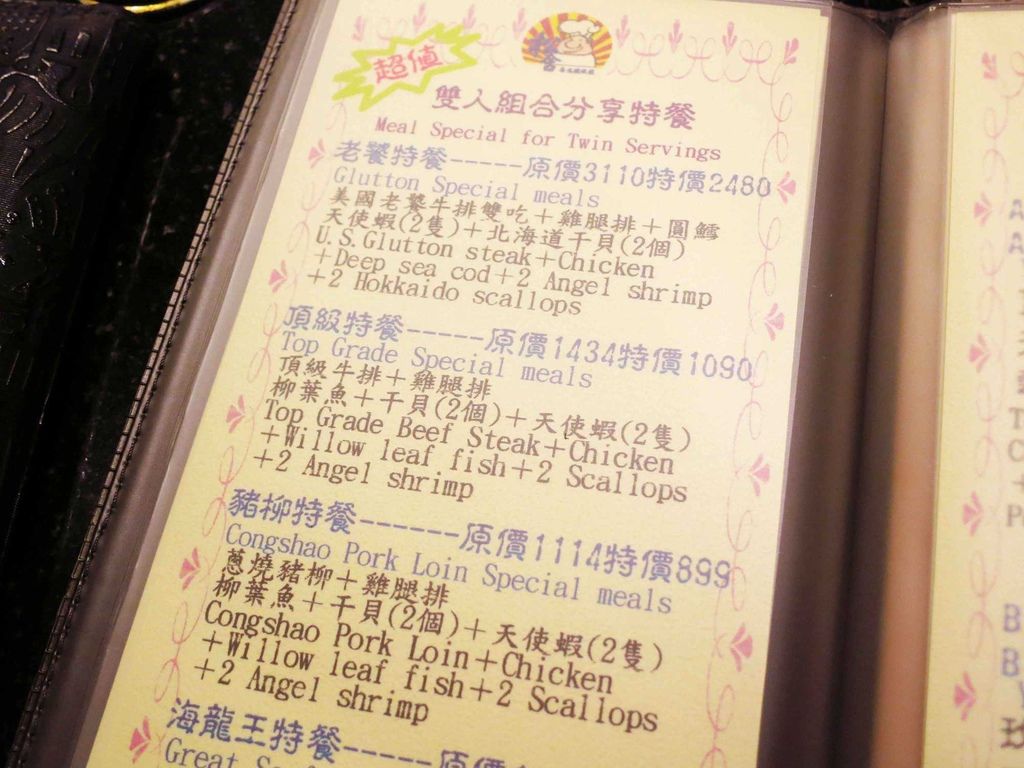 超值
雙人組合分享特餐
Meal Special for Twin Servings
老饕特餐-----原價3110特價2480
Glutton Special meals
美國老饕牛排雙吃+雞腿排+圓鱈
天使蝦(2隻)+北海道干貝(2個)
U.S.Glutton steak+Chicken
+Deep sea cod+2 Angel shrimp
+2 Hokkaido scallops
頂級特餐-----原價1434特價1090
Top Grade Special meals
頂級牛排+雞腿排
柳葉魚+干貝(2個)+天使蝦(2隻)
Top Grade Beef Steak+Chicken
+Willow leaf fish+2 Scallops
+2 Angel shrimp
豬柳特餐------原價1114特價899
Congshao Pork Loin Special meals
蔥燒豬柳+雞腿排
柳葉魚+干貝(2個)+天使蝦(2隻)
Congshao Pork Loin+Chicken
+Willow leaf fish+2 Scallops
+2 Angel shrimp
海龍王特餐-----原價
Great